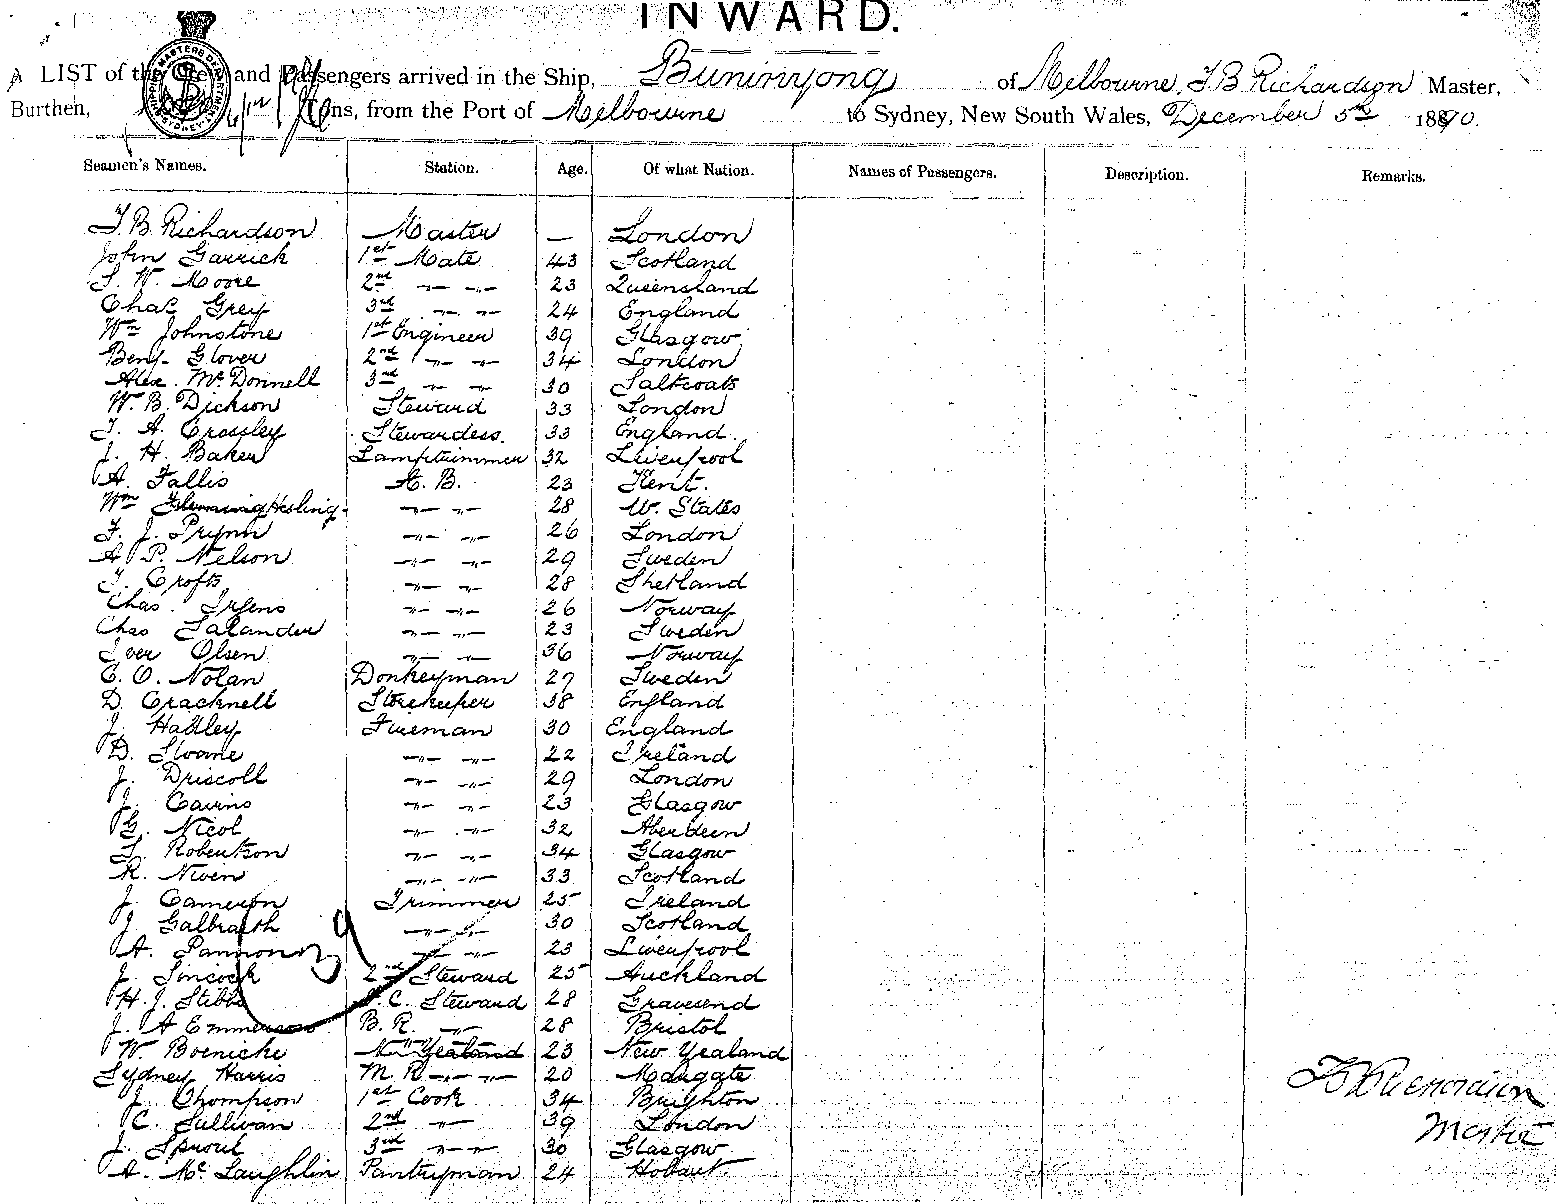 INWARD.
A LIST of the Crew and Passengers arrived in the Ship, Buninyong of Melbourne, T. B Richardson Master,
Burthen, Tons, from the Port of Melbourne to Sydney, New South Wales, December 5th 1890.
Seamen's Names. Station. Age. Of what Nation. Names of Passengers. Description. Remarks.
T. B. Richardson Master — London
John Garrick 1st Mate 43 Scotland
S. W. Moore 2nd -"- -"- 23 Queensland
Chas Grey 3rd -"- -"- 24 England
Wm Johnstone 1st Engineer 39 Glasgow
Benj. Glover 2nd -"- -"- 34 London
Alex. McDonnell 3rd -"- -"- 30 Saltcoats
W. B. Dickson Steward 33 London
T. A. Crossley Stewardess. 33 England
J. H. Baker Lamptrimmer 32 Liverpool
A. Fallis A. B. 23 Kent.
Wm -"- -"- 28 U. States
F. J. Prynn -"- -"- 26 London
A. P. Nelson -"- -"- 29 Sweden
T. Crofts -"- -"- 28 Shetland
Chas. -"- -"- 26 Norway
Chas Salander -"- -"- 23 Sweden
Iver Olsen -"- -"- 36 Norway
C. O. Nolan Donkeyman 27 Sweden
D. Cracknell Storekeeper 38 England
J. Hadley Fireman 30 England
D. Sloane -"- -"- 22 Ireland
J. Driscoll -"- -"- 29 London
J. Cairns -"- -"- 23 Glasgow
G. Nicol -"- -"- 32 Aberdeen
T. Robertson -"- -"- 34 Glasgow
R. Niven -"- -"- 33 Scotland
J. Cameron Trimmer 25 Ireland
J. Galbraith -"- -"- 30 Scotland
A. -"- 23 Liverpool
39
J. Sincock 2nd Steward 25 Auckland
H. J. Stibbs F. C. Steward 28 Gravesend
J. A Emmerson B. R. -"- 28 Bristol
W. Boenicke New Zealand 23 New Zealand
Sydney Harris M. R -"- -"- 20 Margate
J. Thompson 1st Cook 34 Brighton
C. Sullivan 2nd -"- 39 London
J. Sproul 3rd -"- 30 Glasgow
A. McLaughlin Pantryman 24 Hobart
T B Richardson
Master